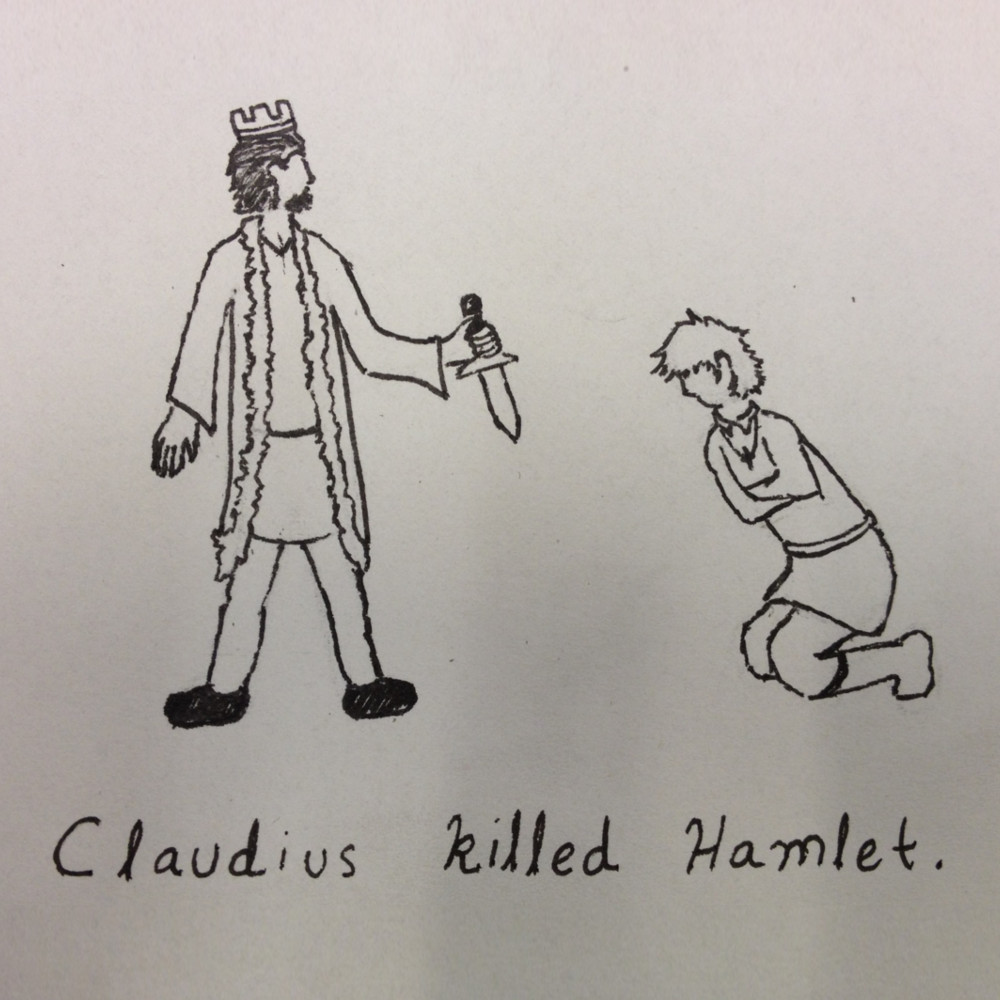 Claudius killed Hamlet.